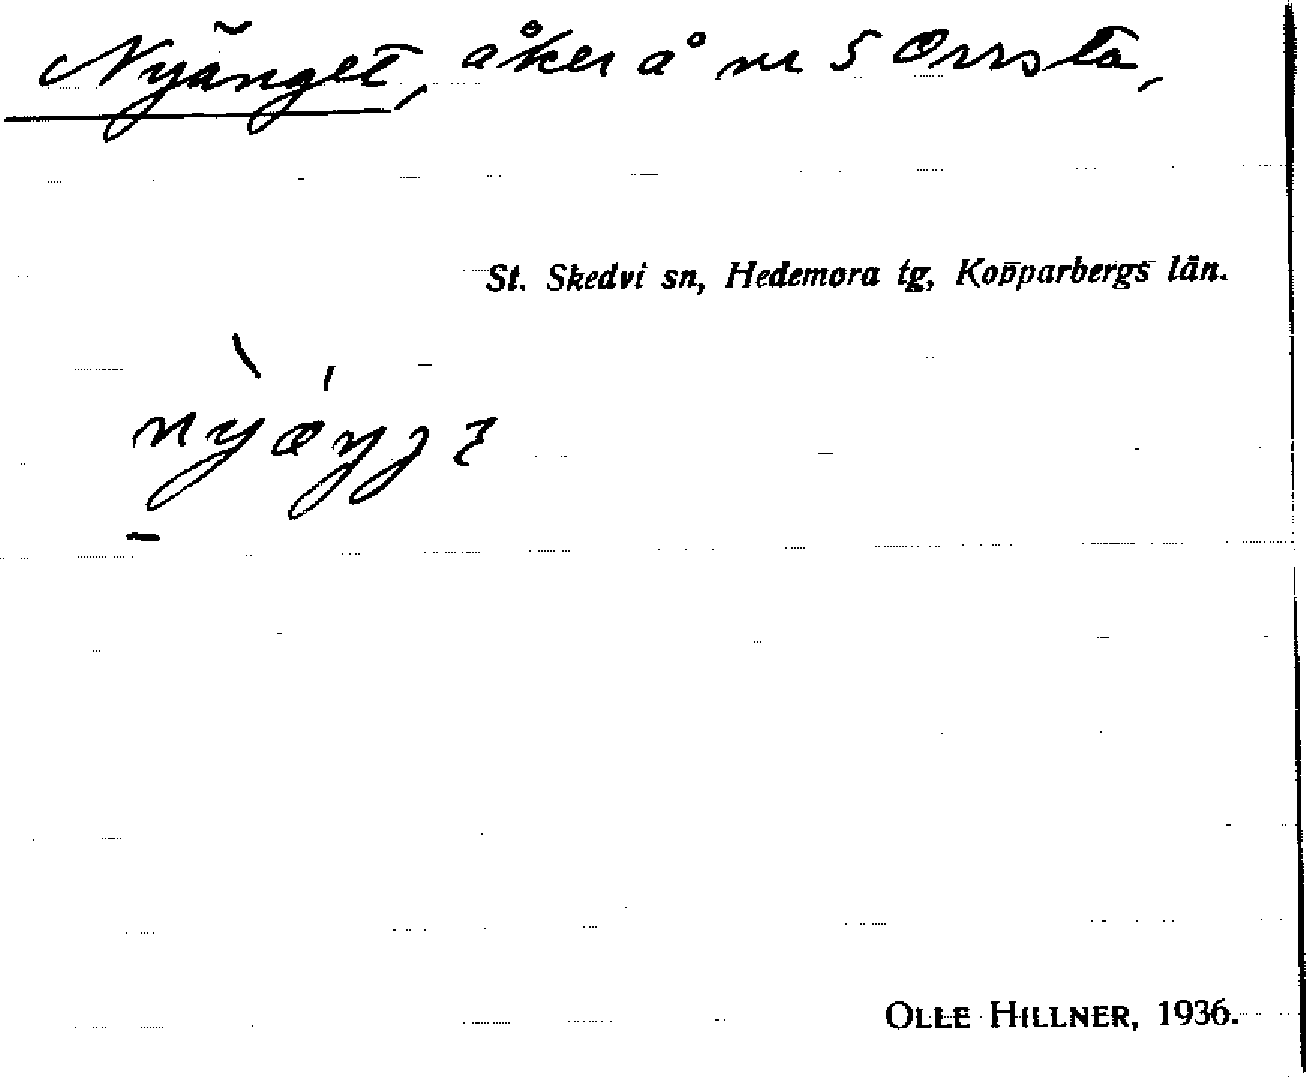 Nyänget, åker å nr 5 Orrsta,
St. Skedvi sn, Hedemora tg, Kopparbergs län.
OLLE HILLNER, 1936.